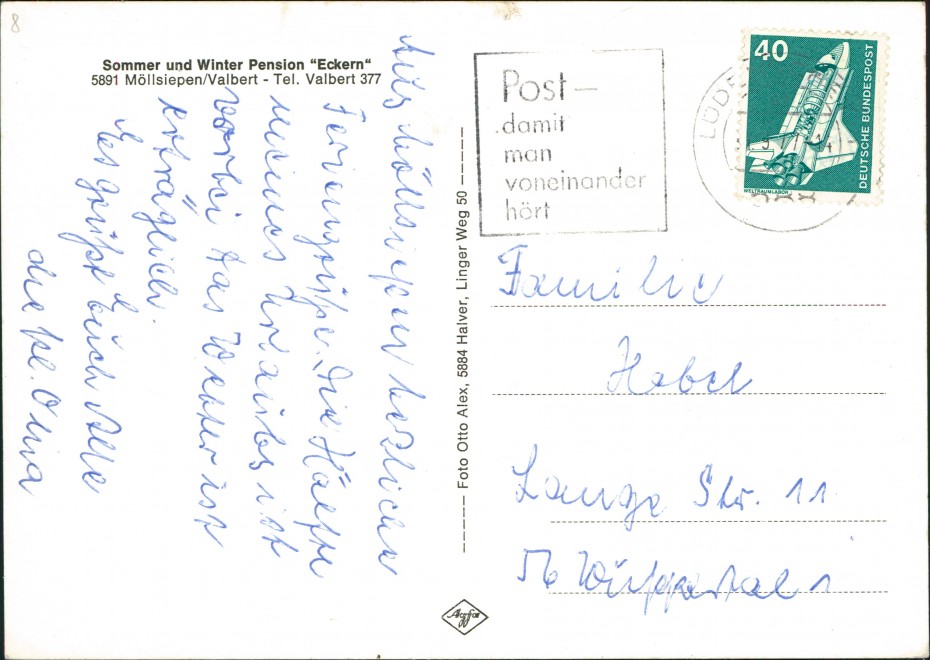 8
Sommer und Winter Pension "Eckern"
5891 Möllsiepen/Valbert - Tel. Valbert 377
Aus Möllsiepen herzliche
Feriengrüße. Die Hälfte
meines Urlaubs ist
vorbei das Wetter ist
erträglich.
Es grüßt Euch Alle
die kl. Oma
Foto Otto Alex, 5884 Halver, Linger Weg 50
Post—
damit
man
voneinander
hört
LÜDE
588
40
DEUTSCHE BUNDESPOST
WELTRAUMLABOR
Familie
Habel
Lange Str. 11
56 Wuppertal 1
Agfa